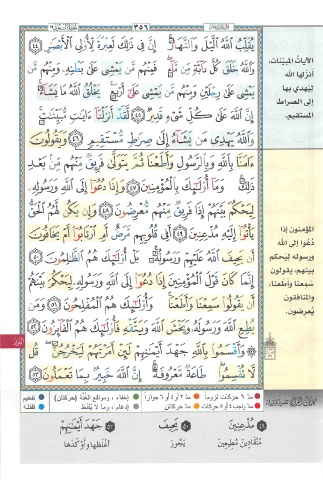 ٣٥٦
يُقَلِّبُ اللَّهُ الَّيْلَ وَالنَّهَارَ إِنَّ فِى ذَٰلِكَ لَعِبْرَةً لِّأُو۟لِى الْأَبْصَٰرِ ٤٤
وَاللَّهُ خَلَقَ كُلَّ دَآبَّةٍ مِّن مَّآءٍ فَمِنْهُم مَّن يَمْشِى عَلَىٰ بَطْنِهِۦ وَمِنْهُم مَّن
يَمْشِى عَلَىٰ رِجْلَيْنِ وَمِنْهُم مَّن يَمْشِى عَلَىٰٓ أَرْبَعٍ يَخْلُقُ اللَّهُ مَا يَشَآءُ
إِنَّ اللَّهَ عَلَىٰ كُلِّ شَىْءٍ قَدِيرٌ ٤٥ لَّقَدْ أَنزَلْنَآ ءَايَٰتٍ مُّبَيِّنَٰتٍ
وَاللَّهُ يَهْدِى مَن يَشَآءُ إِلَىٰ صِرَٰطٍ مُّسْتَقِيمٍ ٤٦ وَيَقُولُونَ
ءَامَنَّا بِاللَّهِ وَبِالرَّسُولِ وَأَطَعْنَا ثُمَّ يَتَوَلَّىٰ فَرِيقٌ مِّنْهُم مِّنۢ بَعْدِ
ذَٰلِكَ وَمَآ أُو۟لَٰٓئِكَ بِالْمُؤْمِنِينَ ٤٧ وَإِذَا دُعُوٓا۟ إِلَى اللَّهِ وَرَسُولِهِۦ
لِيَحْكُمَ بَيْنَهُمْ إِذَا فَرِيقٌ مِّنْهُم مُّعْرِضُونَ ٤٨ وَإِن يَكُن لَّهُمُ الْحَقُّ
يَأْتُوٓا۟ إِلَيْهِ مُذْعِنِينَ ٤٩ أَفِى قُلُوبِهِم مَّرَضٌ أَمِ ارْتَابُوٓا۟ أَمْ يَخَافُونَ
أَن يَحِيفَ اللَّهُ عَلَيْهِمْ وَرَسُولُهُۥ بَلْ أُو۟لَٰٓئِكَ هُمُ الظَّٰلِمُونَ ٥٠
إِنَّمَا كَانَ قَوْلَ الْمُؤْمِنِينَ إِذَا دُعُوٓا۟ إِلَى اللَّهِ وَرَسُولِهِۦ لِيَحْكُمَ بَيْنَهُمْ
أَن يَقُولُوا۟ سَمِعْنَا وَأَطَعْنَا وَأُو۟لَٰٓئِكَ هُمُ الْمُفْلِحُونَ ٥١ وَمَن
يُطِعِ اللَّهَ وَرَسُولَهُۥ وَيَخْشَ اللَّهَ وَيَتَّقْهِ فَأُو۟لَٰٓئِكَ هُمُ الْفَآئِزُونَ ٥٢
وَأَقْسَمُوا۟ بِاللَّهِ جَهْدَ أَيْمَٰنِهِمْ لَئِنْ أَمَرْتَهُمْ لَيَخْرُجُنَّ قُل
لَّا تُقْسِمُوا۟ طَاعَةٌ مَّعْرُوفَةٌ إِنَّ اللَّهَ خَبِيرٌۢ بِمَا تَعْمَلُونَ ٥٣
الآياتُ المبيِّنات،
أنزلها الله
ليَهدي بها
إلى الصراط
المستقيم.
المؤمنون إذا
دُعُوا إلى الله
ورسوله ليحكم
بينهم، يقولون
سَمِعنا وأطَعنا،
والمنافقون
يُعرضون.
النور
مدّ ٦ حركات لزوماً
مدّ ٢ أو ٤ أو ٦ جوازاً
إخفاء، ومواقع الغُنَّة (حركتان)
تفخيم
مدّ واجب ٤ أو ٥ حركات
مدّ حركتان
إدغام، وما لا يُلفَظ
قلقلة
٤٩ مُذْعِنِينَ
مُنْقَادِينَ مُطِيعِينَ
٥٠ يَحِيفَ
يَجُورَ
٥٣ جَهْدَ أَيْمَٰنِهِمْ
أَغْلَظَهَا وَأَوْكَدَهَا